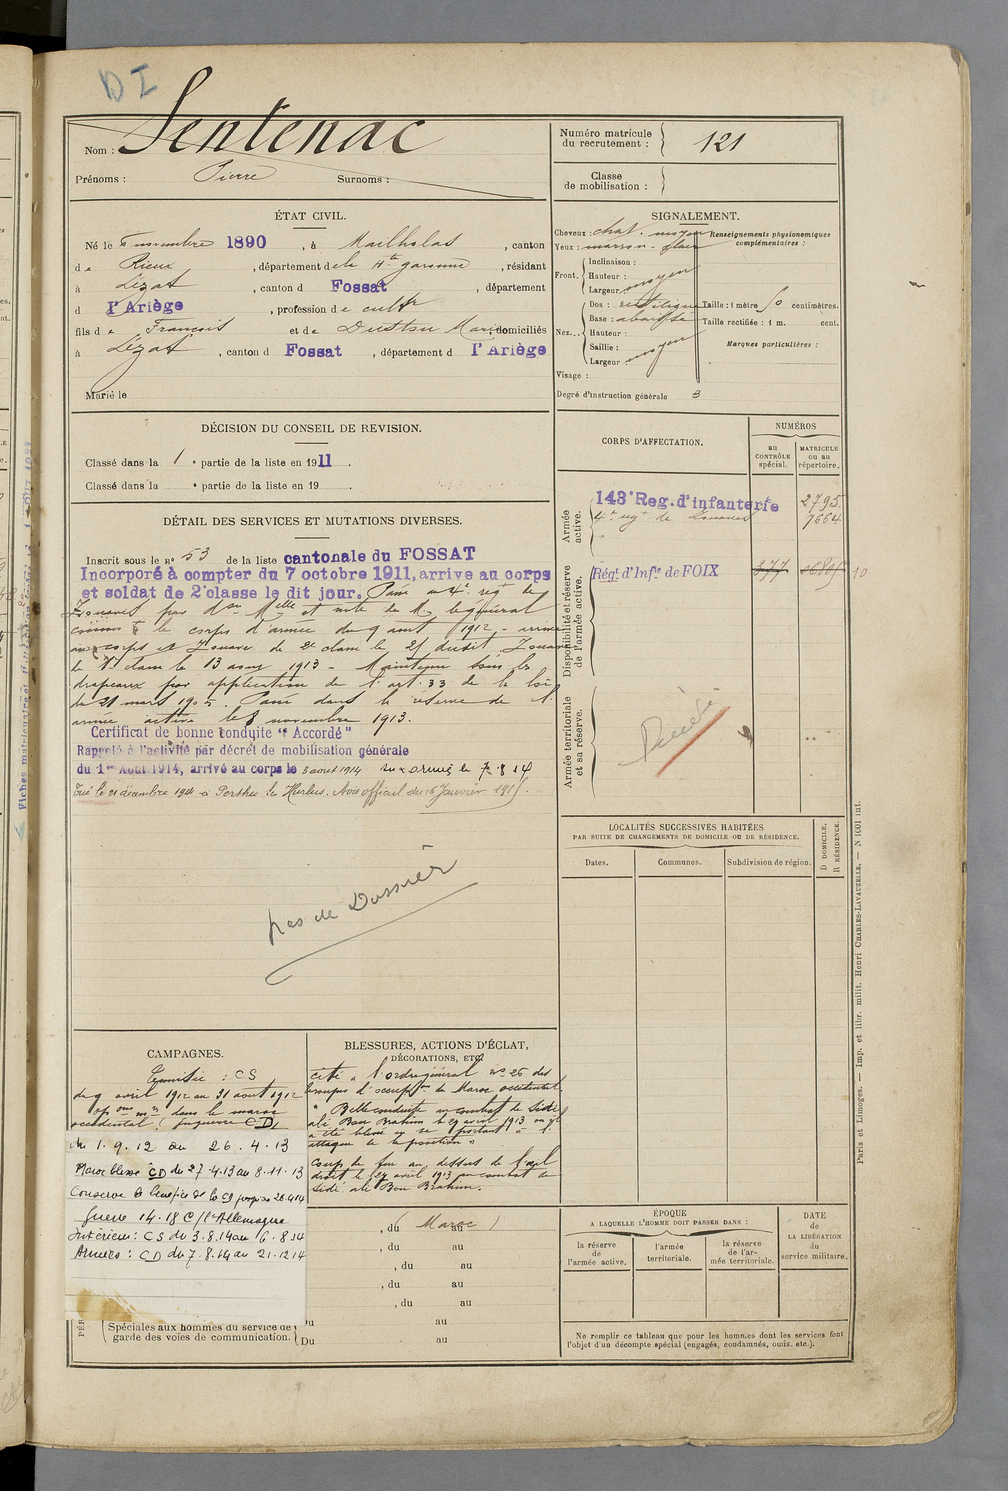 DI
Nom : Sentenac
Prénoms : Pierre Surnoms :
Numéro matricule du recrutement : 121
Classe de mobilisation :
ÉTAT CIVIL.
Né le 6 novembre 1890, à Mailholas, canton
de Rieux, département de la Hte garonne, résidant
à Lézat, canton d Fossat, département
d l'Ariège, profession de cultr
fils de François et de Marie domiciliés
à Lézat, canton d Fossat, département d l'Ariège
Marié le
SIGNALEMENT.
Cheveux : chat. moyen
Yeux : marron
Renseignements physionomiques complémentaires :
Front.
Inclinaison :
Hauteur : moyen
Largeur
Nez...
Dos : rectiligne
Base : abaissée
Hauteur :
Saillie : moyen
Largeur
Visage :
Taille : 1 mètre 50 centimètres.
Taille rectifiée : 1 m. cent.
Marques particulières :
Degré d'instruction générale 3
DÉCISION DU CONSEIL DE REVISION.
Classé dans la 1e partie de la liste en 1911.
Classé dans la e partie de la liste en 19 .
DÉTAIL DES SERVICES ET MUTATIONS DIVERSES.
Inscrit sous le no 53 de la liste cantonale du FOSSAT
Incorporé à compter du 7 octobre 1911, arrive au corps
et soldat de 2e classe le dit jour. Passé au 4e régt de
Zouaves par don Melle et note de M. le général
le corps d'armée du 9 août 1912 - arrivé
au corps et Zouave de 2e classe le 21 dudit. Zouave
de 1e classe le 13 1913 - Maintenu sous les
drapeaux par application de l'art. 33 de la loi
du 21 mars 1905. Passé dans la réserve de l'
armée active le 8 novembre 1913.
Certificat de bonne conduite " Accordé "
Rappelé à l'activité par décret de mobilisation générale
du 1er Août 1914, arrivé au corps le 3 aout 1914 aux armées le 7.8.14
Tué le 21 décembre 1914 à Perthes les Hurlus. Avis officiel du 16 Janvier 1915.
pas de Dossier
CORPS D'AFFECTATION.
NUMÉROS
au CONTRÔLE spécial.
MATRICULE ou au répertoire.
Armée active.
143e Reg. d'infanterie 2795
4e regt de Zouaves 7664
Disponibilité et réserve de l'armée active.
Régt d'Infie de FOIX 377
Armée territoriale et sa réserve.
Décédé
LOCALITÉS SUCCESSIVES HABITÉES
PAR SUITE DE CHANGEMENTS DE DOMICILE OU DE RÉSIDENCE.
Dates. Communes. Subdivision de région.
D DOMICILE, R RÉSIDENCE.
CAMPAGNES.
Tunisie : CS
du 9 avril 1912 au 31 aout 1912
opons mres dans le maroc
occidental : en guerre CD,
du 1.9.12 au 26.4.13
Maroc blessé CD du 27.4.13 au 8.11.13
Conserve le bénéfice de la CD jusqu'au 26.4.14
Guerre 14.18 C/ l'Allemagne
Intérieur : CS du 3.8.14 au 6.8.14
Armées : CD du 7.8.14 au 21.12.14
BLESSURES, ACTIONS D'ÉCLAT,
DÉCORATIONS, ETC.
cité à l'ordre général no 26 des
troupes d'occupton du Maroc occidental
" Belle conduite au combat de Sidi
ali Bou Brahim le 27 avril 1913 où il
a été blessé en se portant à l'
attaque de la position "
Coup de feu au dessus de l'œil
droit le 27 avril 1913 au combat de
Sidi ali Bou Brahim.
, du ( Maroc ) au
, du au
, du au
, du au
, du au
Spéciales aux hommes du service de
garde des voies de communication.
Du au
Du au
ÉPOQUE
A LAQUELLE L'HOMME DOIT PASSER DANS :
la réserve de l'armée active.
l'armée territoriale.
la réserve de l'armée territoriale.
DATE DE LA LIBÉRATION du service militaire.
Ne remplir ce tableau que pour les hommes dont les services font
l'objet d'un décompte spécial (engagés, condamnés, omis, etc.).
Paris et Limoges. — Imp. et libr. milit. Henri CHARLES-LAVAUZELLE. — N 1001 int.